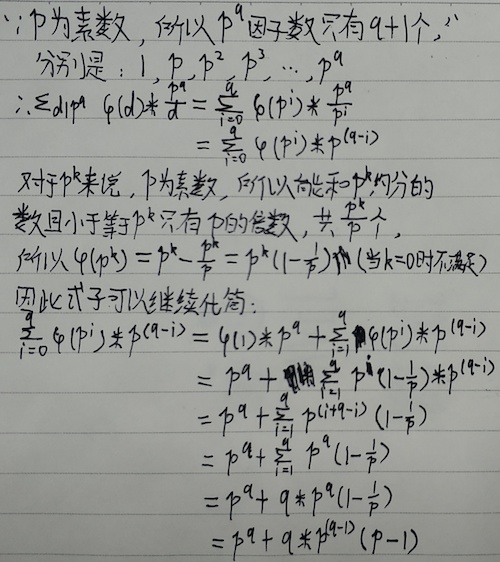 ∵p为素数,所以p^q因子数只有q+1个,
分别是:1,p,p²,p³,…,p^q
∴Σd|p^q φ(d)*p^q/d = Σ_{i=0}^{q} φ(p^i)*p^q/p^i
= Σ_{i=0}^{q} φ(p^i)*p^(q-i)
对于p^k来说,p为素数,所以能和p^k约分的
数且小于等于p^k只有p的倍数,共p^k/p个,
所以φ(p^k)=p^k-p^k/p=p^k(1-1/p)(当k=0时不满足)
因此式子可以继续化简:
Σ_{i=0}^{q} φ(p^i)*p^(q-i) = φ(1)*p^q+Σ_{i=1}^{q} φ(p^i)*p^(q-i)
= p^q+Σ_{i=1}^{q} p^i(1-1/p)*p^(q-i)
= p^q+Σ_{i=1}^{q} p^(i+q-i)(1-1/p)
= p^q+Σ_{i=1}^{q} p^q(1-1/p)
= p^q+q*p^q(1-1/p)
= p^q+q*p^(q-1)(p-1)